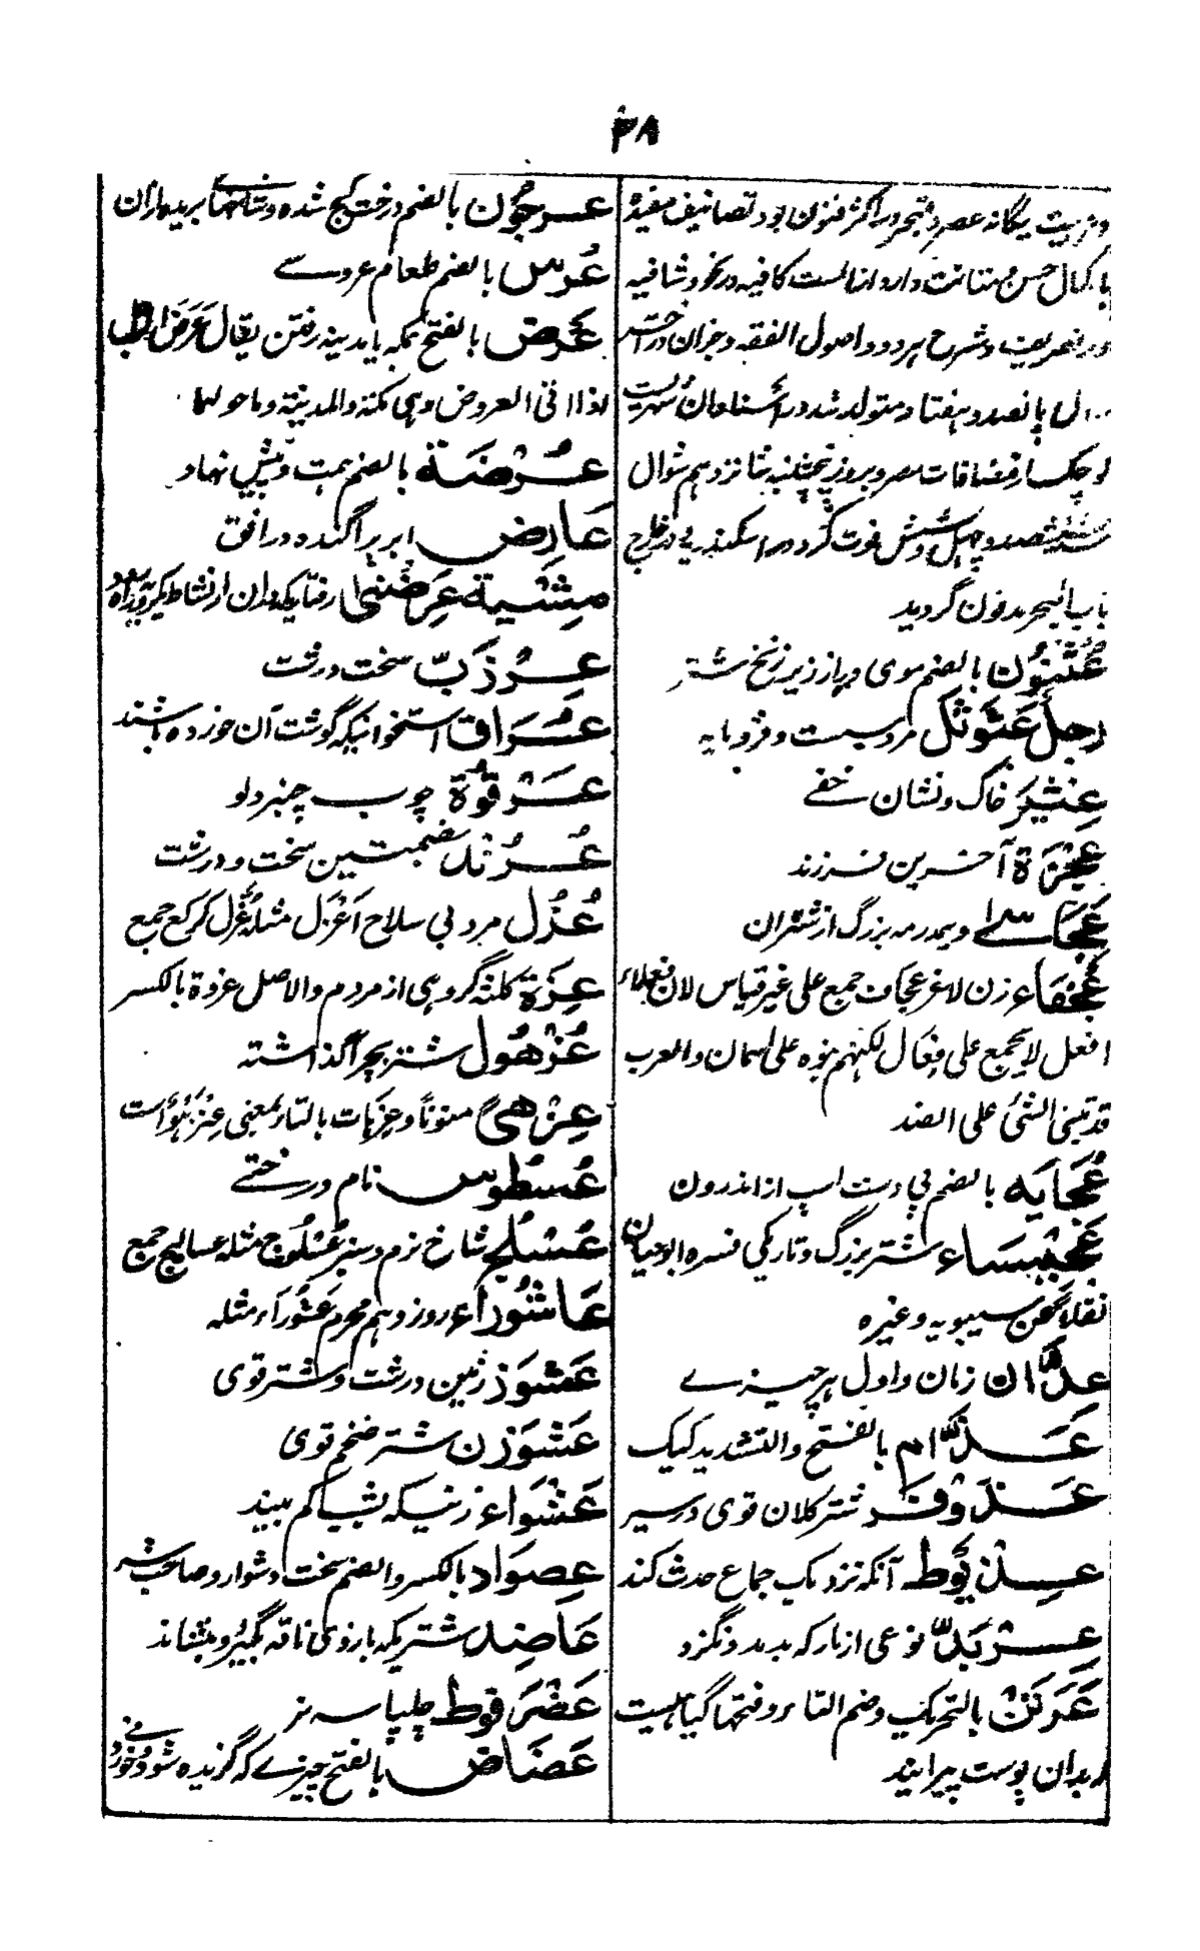 ٣٨
وعربیت یگانه عصر و متبحر در اکثر فنون بود تصانیف مفیده
با کمال حسن و متانت دارد از انست کافیه در نحو و شافیه
در تصریف و شرح هر دو و اصول الفقه و جز ان در آخر
سال پانصد و هفتاد متولد شد در
از مضافات مصر و بروز پنجشنبه شانزدهم شوال
ششصد و چهل و شش فوت کرد در اسکندریه در خارج
باب البحر مدفون گردید
عُثْنُوْن بالضم موی دراز زیر زنخ شتر
رجل عَثَوْثَل مرد سست و فرومایه
عِثْیَر خاک و نشان خفی
عِجْزَة آخرین فرزند
عَجَاسے رمه بزرگ از شتران
عَجْفَاء زن لاغر عجاف جمع علی غیر قیاس لان فعلاء
افعل لا یجمع علی فعال لکنهم بنوه علی سمان والعرب
قد تبنی الشئ علی الضد
عُجَایه بالضم پی دست اسپ از اندرون
عَجِیْسَاء شتر بزرگ و تاریکی فسره ابو حیان
نقلا عن سیبویه وغیره
عِدَّان زمان و اول هر چیزے
عَذَّام بالفتح والتشدید کیک
عَذَوْفَر شتر کلان قوی در سیر
عِذْیَوْط آنکه نزدیک جماع حدث کند
عِرْبَدّ نوعی از مار که بدمد و نگزد
عَرَتَن بالتحریک وضم التاء وفتحها گیاهیست
بدان پوست پیرایند
عرجون بالضم درخت کج شده و شاخهاء بریده از آن
عُرس بالضم طعام عروسے
عَرض بالفتح بمکه یا مدینه رفتن یقال عَرَضَ الرجل
اذا اتی العروض وهی مکة والمدینة وما حولهما
عُرْضَة بالضم همت و پیش نهاد
عَارِض ابر پراگنده در افق
مِشْیة عِرَضْنی رفتاریکه در ان از نشاط
عِرْذَبّ سخت و رشت
عُرَاق استخوانیکه گوشت آن خورده باشند
عَرْقُوَة چوب چنبر دلو
عُرُنْد بضمتین سخت و درشت
عُزُل مرد بی سلاح اَعْزَل مثله عُزَّل کرکع جمع
عِزَة کلثة گروهی از مردم والاصل عزوة بالکسر
عُزْهُول شتر بچرا گذاشته
عِزْهیً منونًا وعزهات بالتاء بمعنی عِنْزَهْوٌ است
عُسْطُوس نام درختے
عُسْلُج شاخ نرم و سبز عُسْلُوج مثله عسالیج جمع
عَاشُوراء روز دهم محرم عَشُوراء مثله
عَشَوَز زمین درشت و شتر قوی
عَشَوْزَن شتر ضخم قوی
عَشْوَاء زنیکه بشب کم بیند
عِصوَاد بالکسر والضم سخت و دشوار و صاحب شر
عَاضِد شتریکه بازوی ناقه بگیرد و بنشاند
عَضْرَ فوط چلپاسه نر
عَضَاض بالفتح چیزے که گزیده شود و خورد